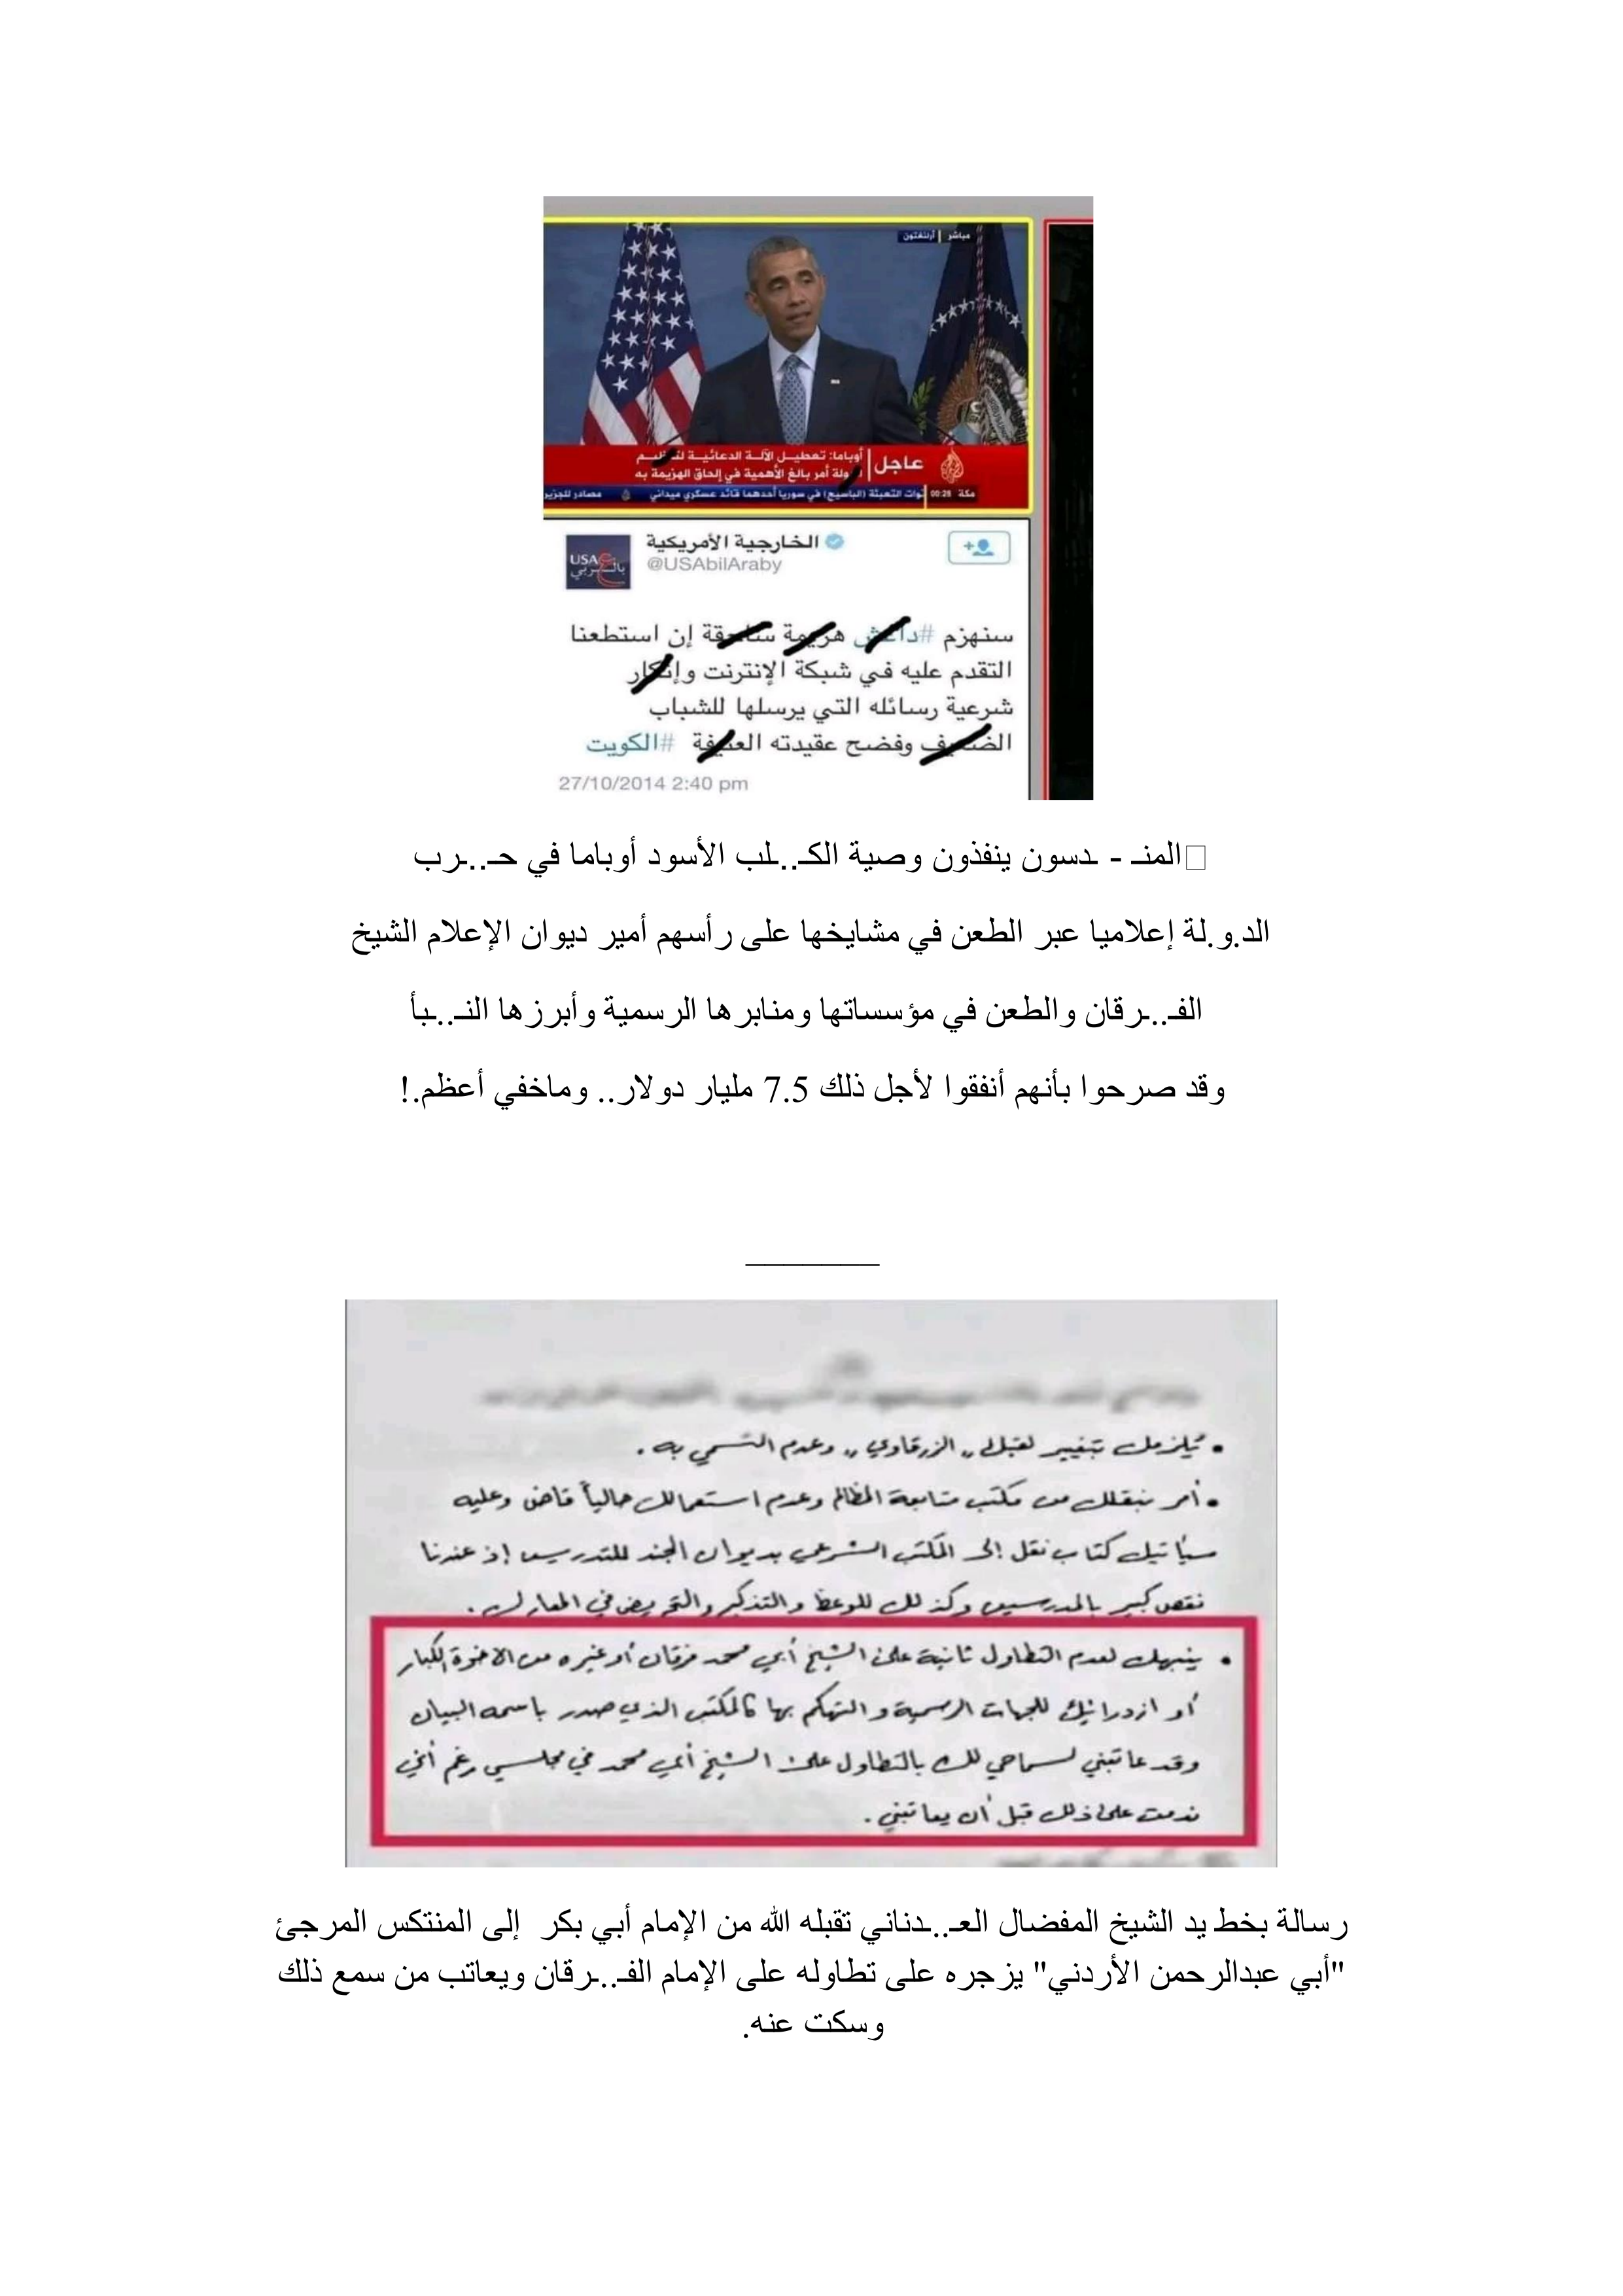 مباشر | أرلنغتون
عاجل
أوباما: تعطيل الآلة الدعائية لتنظيم
الدولة أمر بالغ الأهمية في إلحاق الهزيمة به
مكة 00:28 في سوريا أحدهما قائد عسكري ميداني مصادر للجزير
USA بالعربي
الخارجية الأمريكية
@USAbilAraby
سنهزم #داعش هزيمة ساحقة إن استطعنا
التقدم عليه في شبكة الإنترنت وإنكار
شرعية رسائله التي يرسلها للشباب
الضعيف وفضح عقيدته العنيفة #الكويت
27/10/2014 2:40 pm
المنـ - ـدسون ينفذون وصية الكـ..ـلب الأسود أوباما في حـ..ـرب
الد.و.لة إعلاميا عبر الطعن في مشايخها على رأسهم أمير ديوان الإعلام الشيخ
الفـ..ـرقان والطعن في مؤسساتها ومنابرها الرسمية وأبرزها النـ..ـبأ
وقد صرحوا بأنهم أنفقوا لأجل ذلك 7.5 مليار دولار.. وماخفي أعظم.!
• يُلزمك بتغيير لقبك ,, الزرقاوي ,, وعدم التسمي به .
• أمر بنقلك من مكتب متابعة المظالم وعدم استعمالك حالياً قاض وعليه
سيأتيك كتاب نقل إلى المكتب الشرعي بديوان الجند للتدريس إذ عندنا
نقص كبير بالمدرسين وكذلك للوعظ والتذكير والتحريض في المعارك .
• ينبهك لعدم التطاول ثانية على الشيخ أبي محمد فرقان أو غيره من الاخوة الكبار
أو ازدرائك للجهات الرسمية والتهكم بها كالمكتب الذي صدر باسمه البيان
وقد عاتبني لسماحي لك بالتطاول على الشيخ أبي محمد في مجلسي رغم أني
ندمت على ذلك قبل أن يعاتبني .
رسالة بخط يد الشيخ المفضال العـ..ـدناني تقبله الله من الإمام أبي بكر إلى المنتكس المرجئ
"أبي عبدالرحمن الأردني" يزجره على تطاوله على الإمام الفـ..ـرقان ويعاتب من سمع ذلك
وسكت عنه.